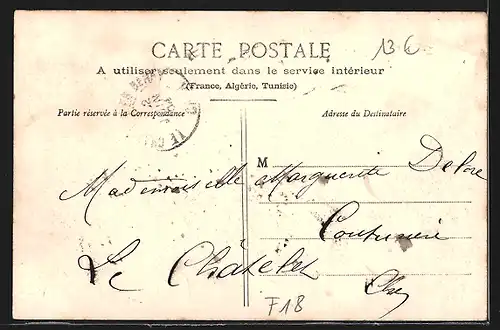 CARTE POSTALE
13 €
A utiliser seulement dans le service intérieur
(France, Algérie, Tunisie)
Partie réservée à la Correspondance
Adresse du Destinataire
M
Mademoiselle Marguerite Delore
Couturière
Le Châtelet
Cher
F18